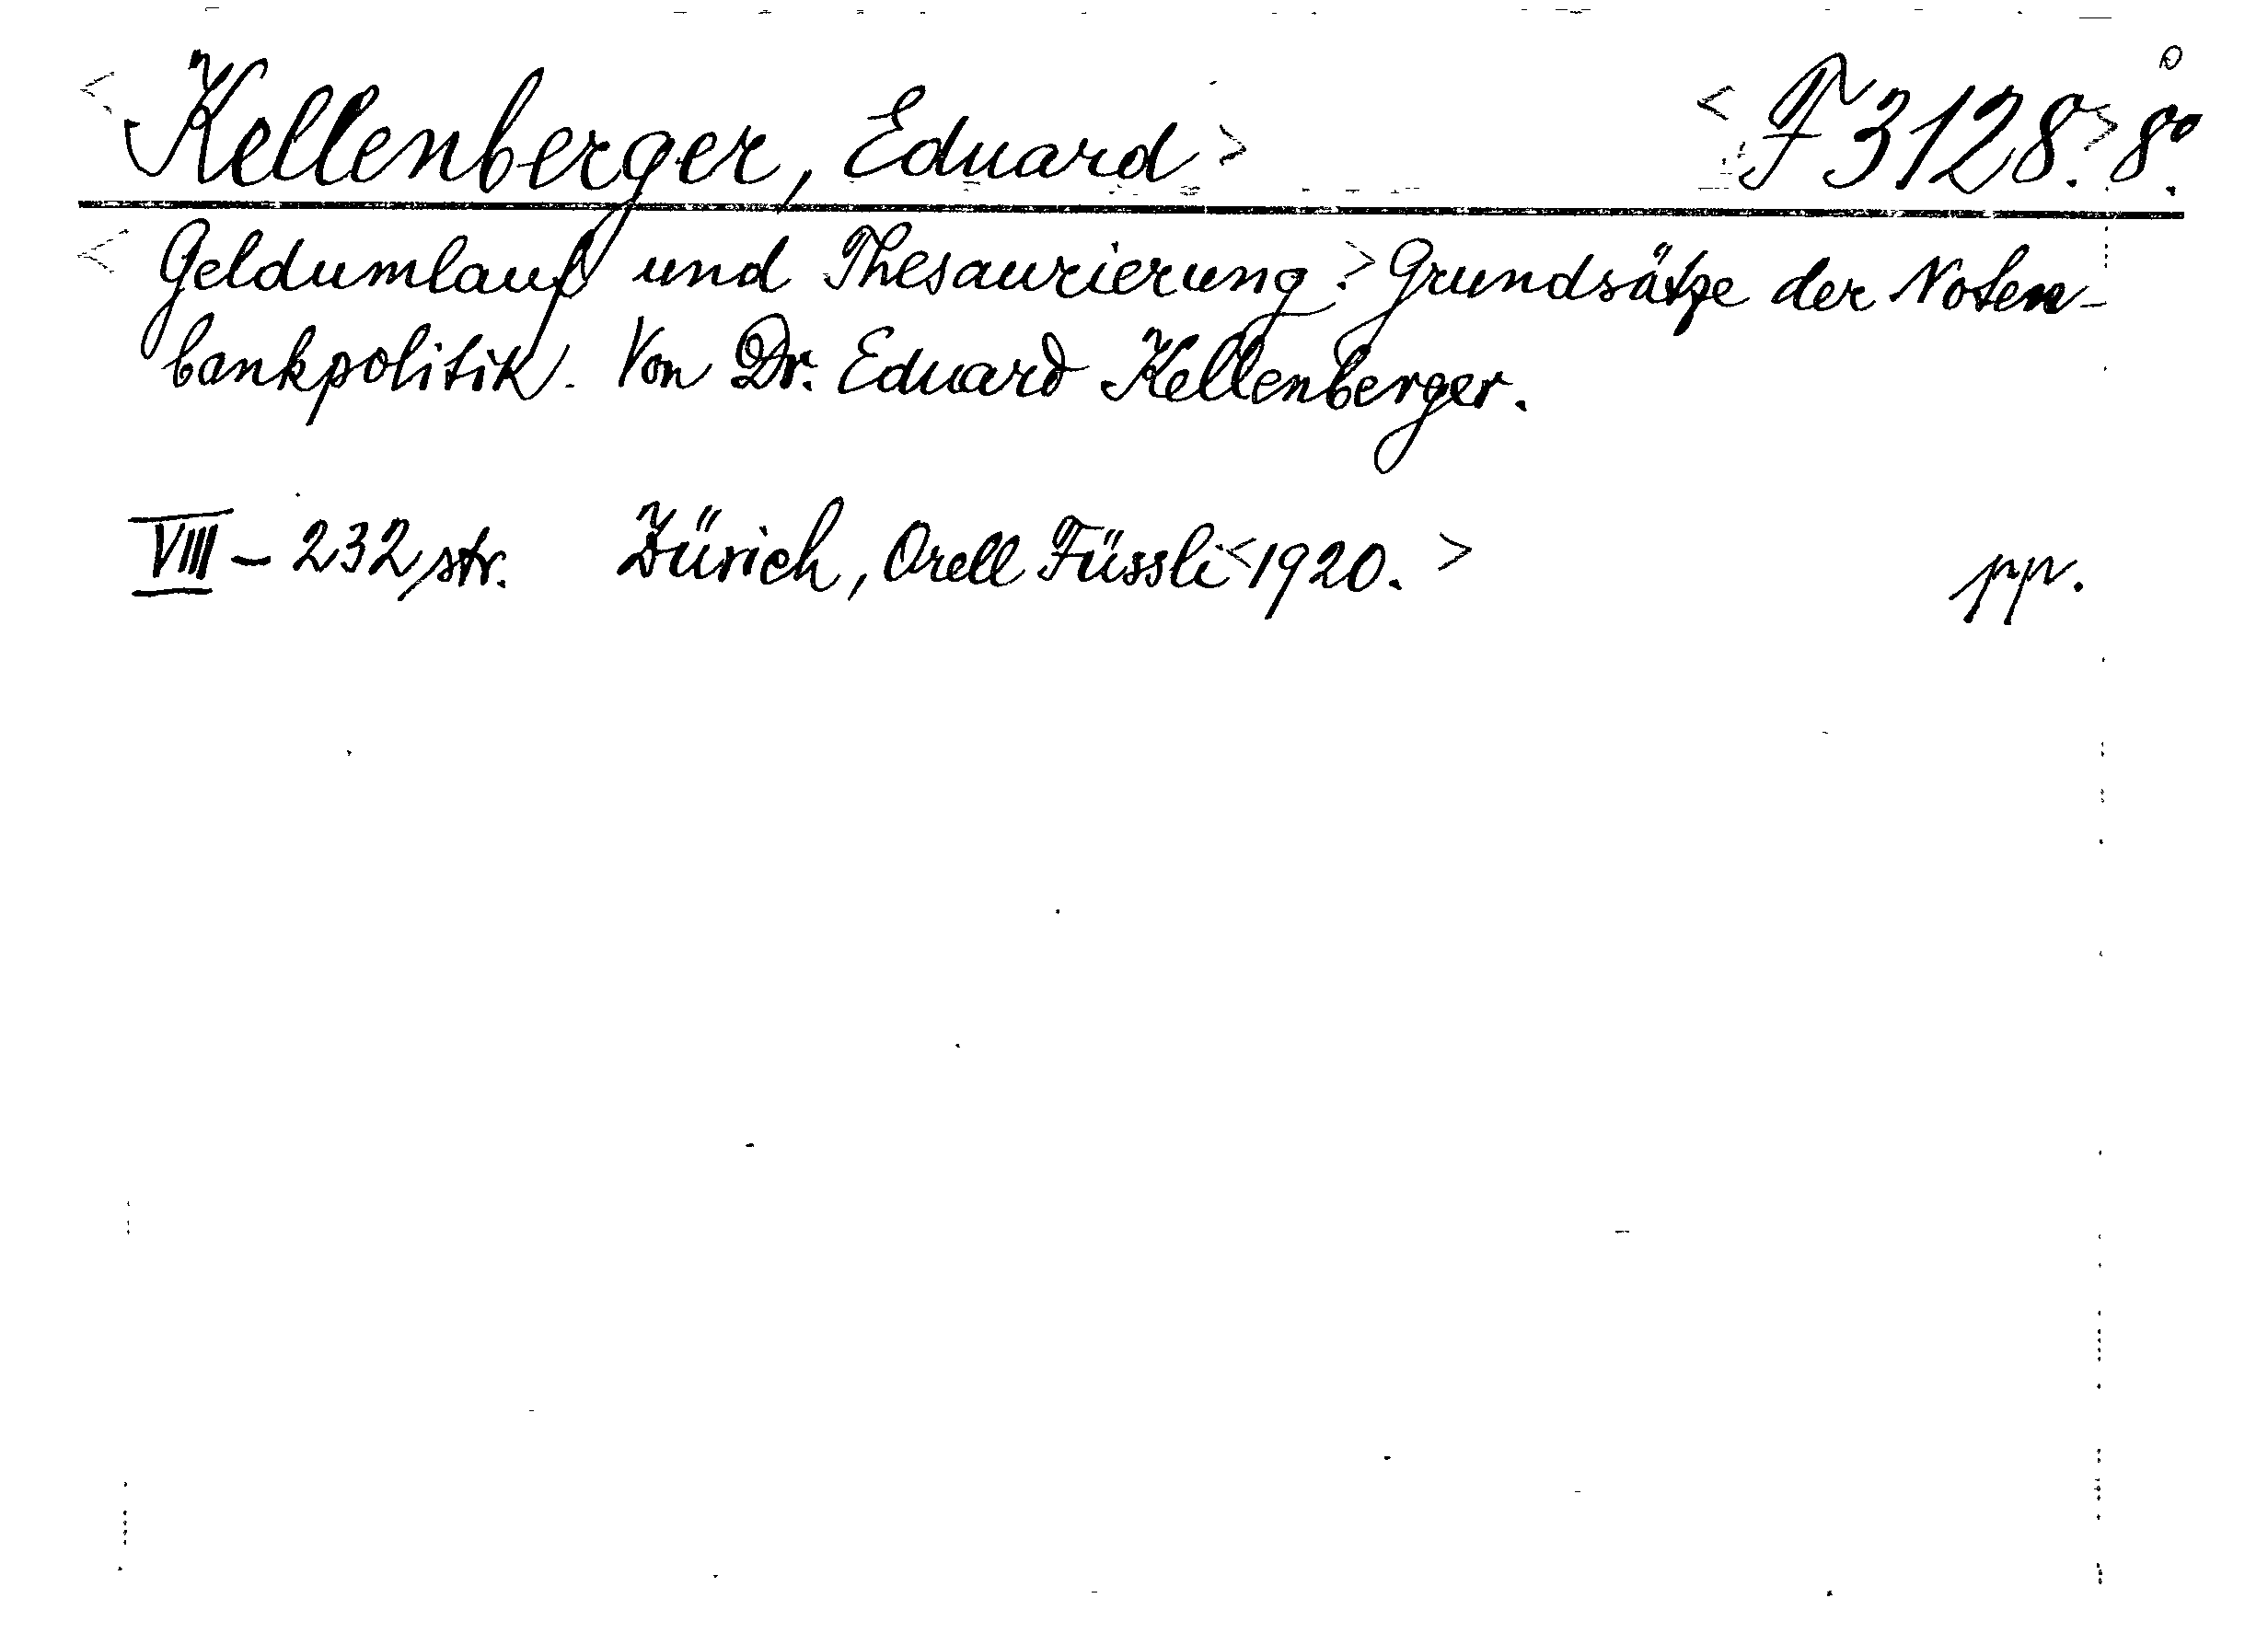 <Kellenberger, Eduard> <F 3128.> 8º.
<Geldumlauf und Thesaurierung.> Grundsätze der Noten-
bankpolitik. Von Dr. Eduard Kellenberger.
VIII – 232 str. Zürich, Orell Füssli <1920.> pp.